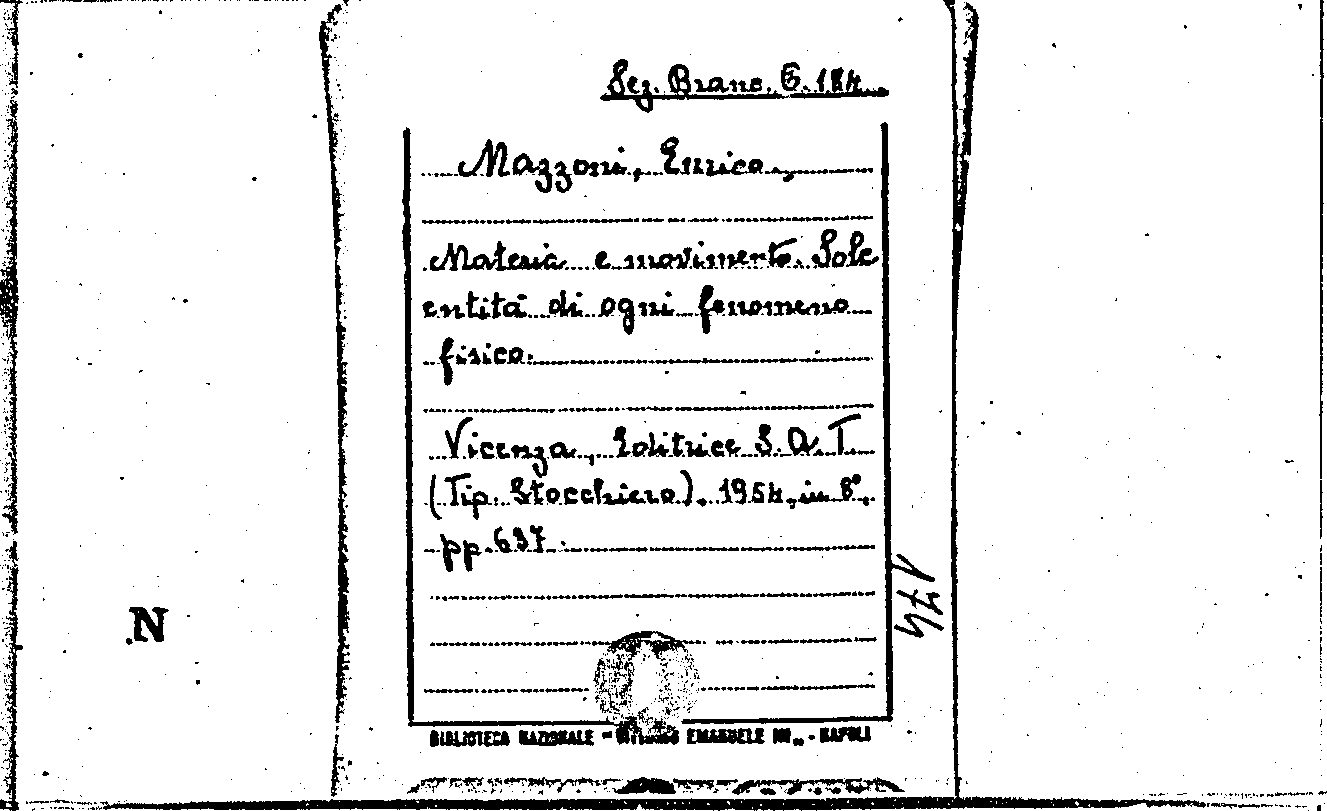 Sez. Branc. G. 184
Mazzoni, Enrico,
Materia e movimento. Sole
entità di ogni fenomeno
fisico.
Vicenza, Editrice S.A.T.
(Tip. Stocchiero), 1954, in 8°,
pp. 637.
174
N
BIBLIOTECA NAZIONALE "VITTORIO EMANUELE III" - NAPOLI